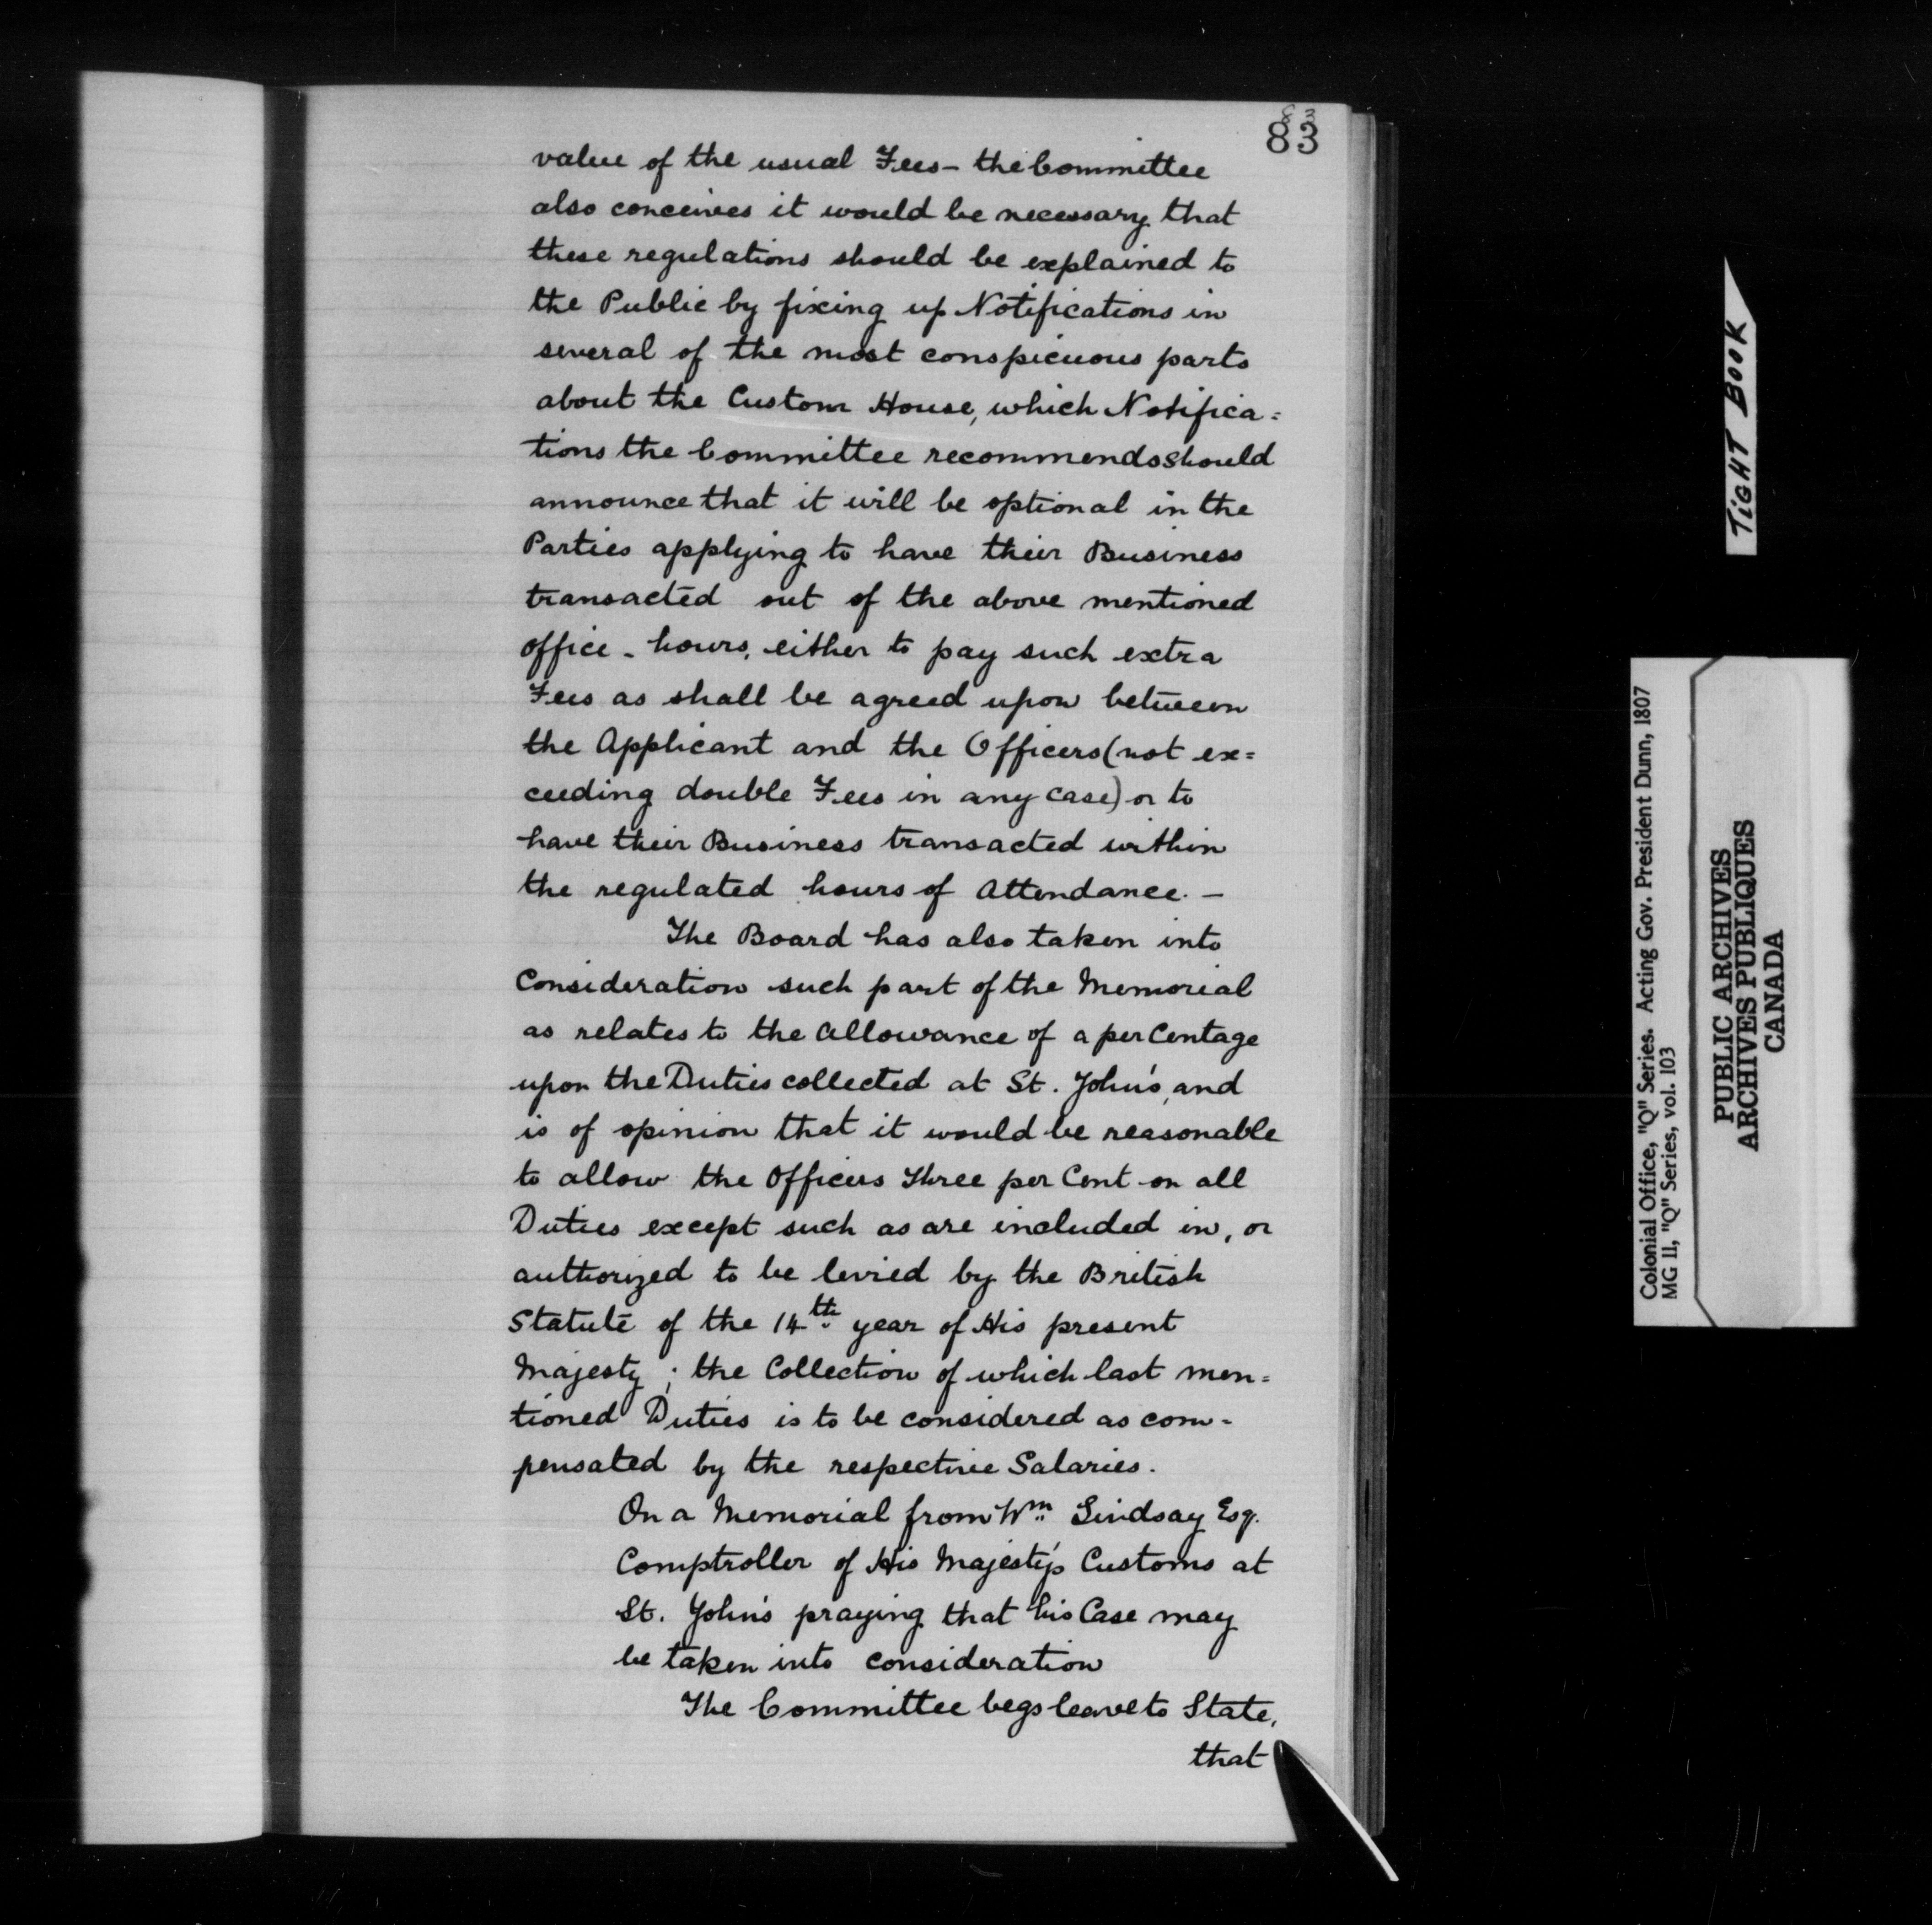 83
83
value of the usual Fees - the Committee
also conceives it would be necessary that
these regulations should be explained to
the Public by fixing up Notifications in
several of the most conspicuous parts
about the Custom House, which Notifica=
tions the Committee recommends should
announce that it will be optional in the
Parties applying to have their Business
transacted out of the above mentioned
office - hours, either to pay such extra
Fees as shall be agreed upon between
the Applicant and the Officers (not ex=
ceeding double Fees in any case) or to
have their Business transacted within
the regulated hours of Attendance. -
The Board has also taken into
Consideration such part of the Memorial
as relates to the Allowance of a per Centage
upon the Duties collected at St. John's, and
is of opinion that it would be reasonable
to allow the Officers Three per Cent on all
Duties except such as are included in, or
authorized to be levied by the British
Statute of the 14th year of His present
Majesty; the Collection of which last men=
tioned Duties is to be considered as com-
pensated by the respective Salaries.
On a Memorial from Wm Lindsay Esq.
Comptroller of His Majesty's Customs at
St. John's praying that his Case may
be taken into consideration
The Committee begs leave to State,
that
TIGHT BOOK
Colonial Office, "Q" Series. Acting Gov. President Dunn, 1807
MG 11, "Q" Series, vol. 103
PUBLIC ARCHIVES
ARCHIVES PUBLIQUES
CANADA